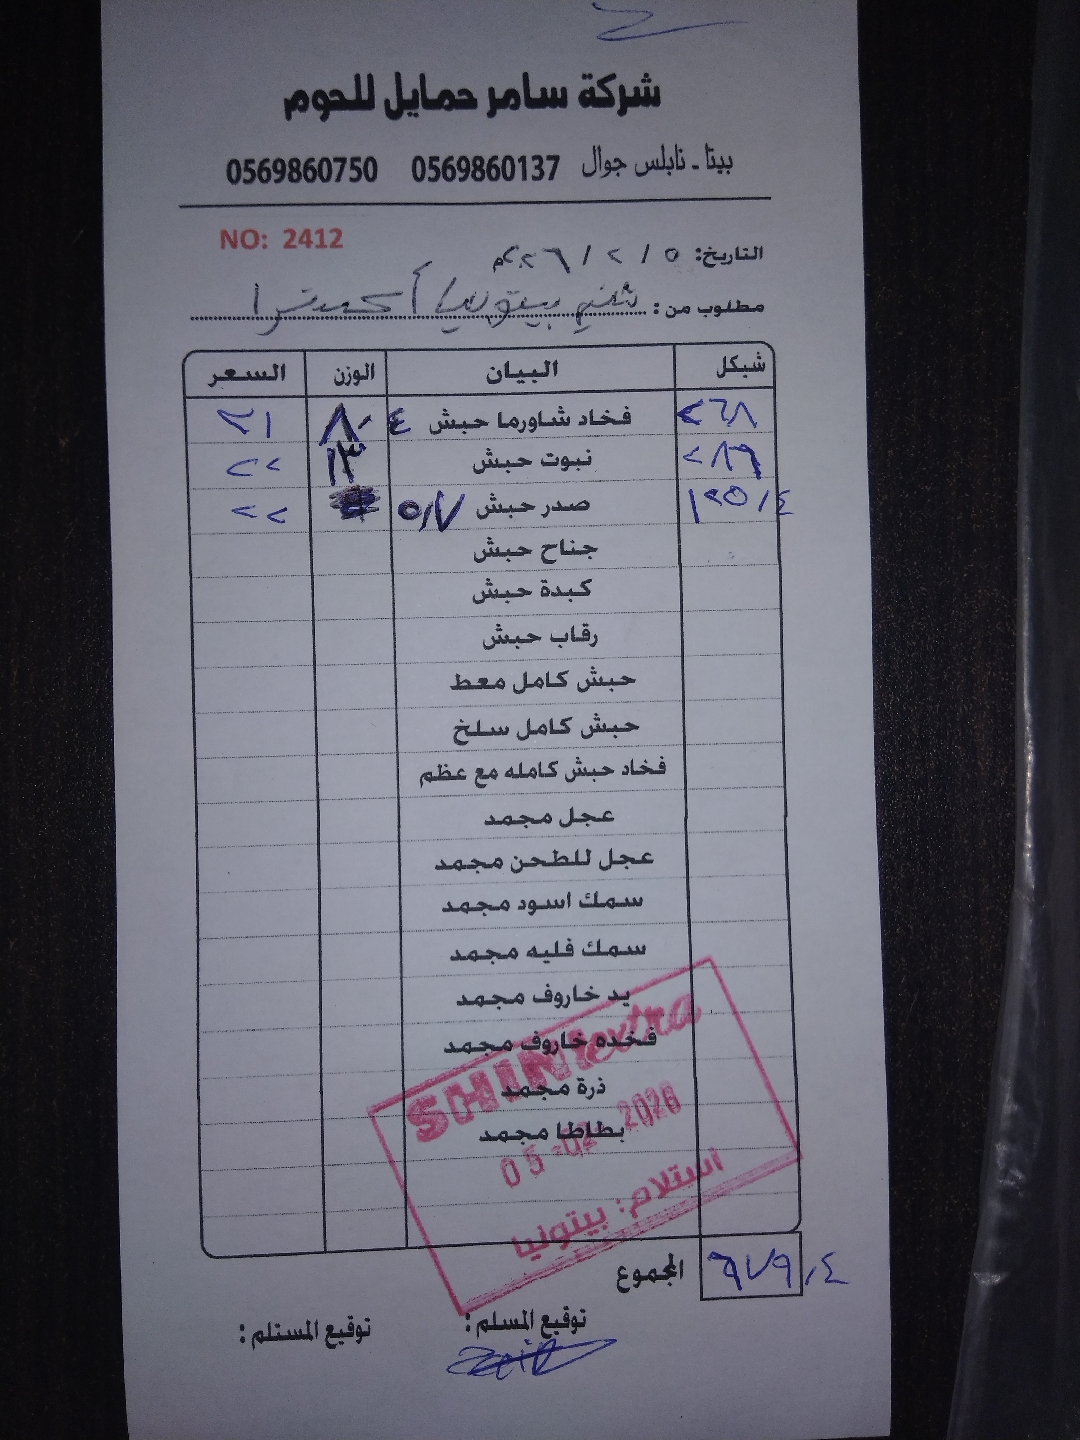 شركة سامر حمايل للحوم
بيتا - نابلس جوال 0569860137 0569860750
NO: 2412
التاريخ: ٥ / ٢ / ٢٠٢٦م
مطلوب من: شني بيتونيا / أكسترا
شيكل البيان الوزن السعر
فخاد شاورما حبش ٢١
٢٨٦ نبوت حبش ١٣ ٢٢
١٢٥,٤ صدر حبش ٥,٧ ٢٢
جناح حبش
كبدة حبش
رقاب حبش
حبش كامل معط
حبش كامل سلخ
فخاد حبش كامله مع عظم
عجل مجمد
عجل للطحن مجمد
سمك اسود مجمد
سمك فليه مجمد
يد خاروف مجمد
فخده خاروف مجمد
ذرة مجمد
بطاطا مجمد
SHINI extra
05-02-2026
استلام: بيتونيا
المجموع ٦٧٩,٤
توقيع المسلم: توقيع المستلم: